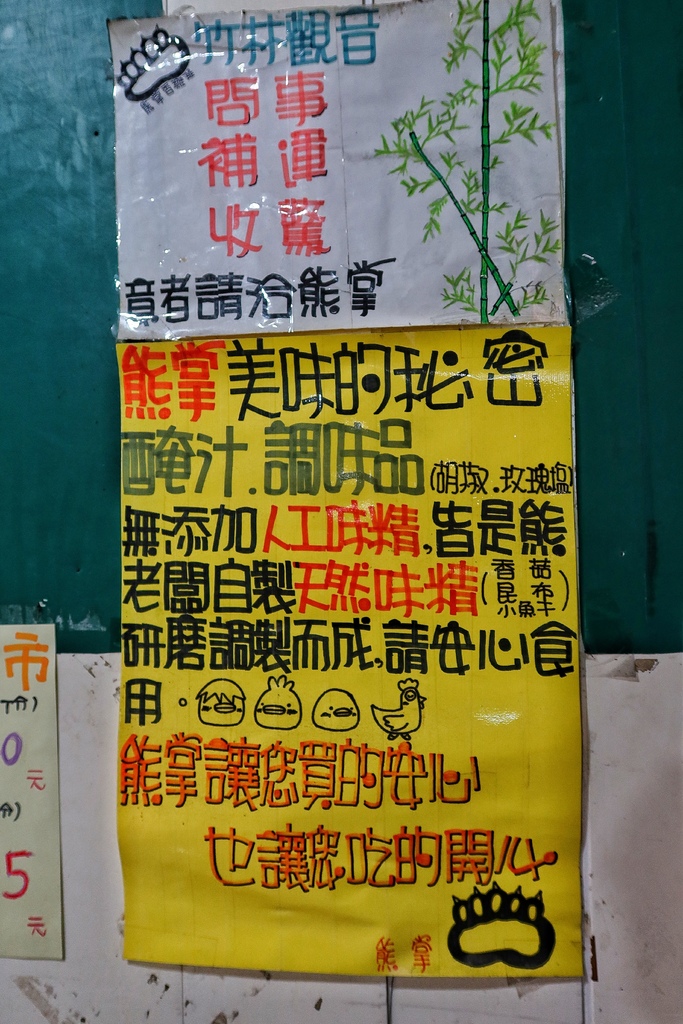 竹林觀音
熊掌香雞排
問事
補運
收驚
意者請洽熊掌
熊掌美味的秘密
醃汁.調味品(胡椒.玫瑰塩)
無添加人工味精,皆是熊
老闆自製天然味精(香菇
昆布
小魚干)
研磨調製而成,請安心食
用。
熊掌讓您買的安心
也讓您吃的開心
熊掌
市
分)
0
元
分)
5
元